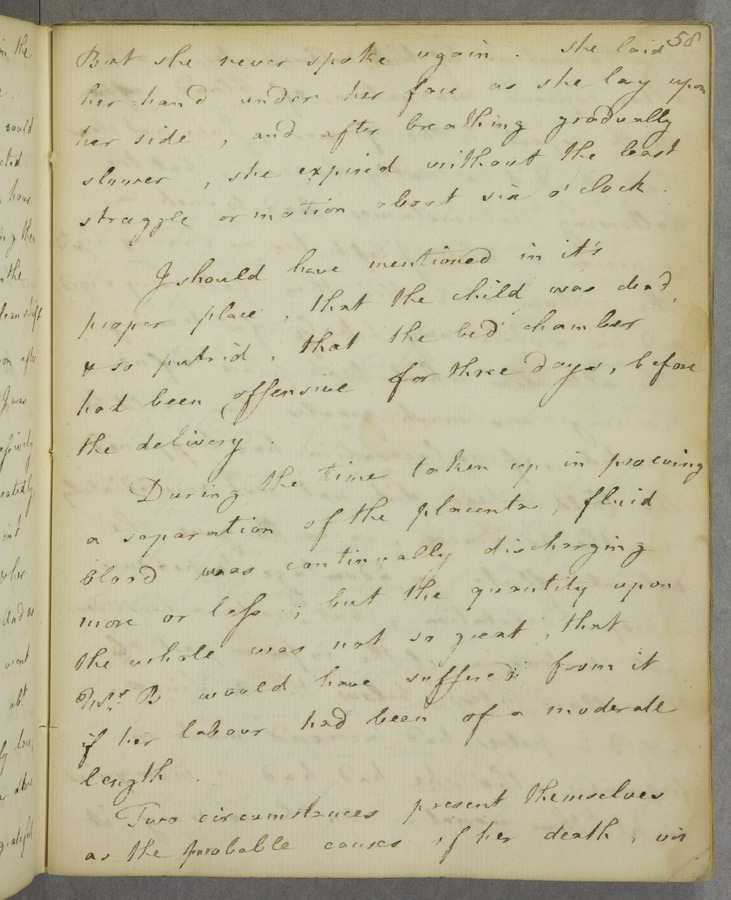 58
But she never spoke again. She laid
her hand under her face as she lay upon
her side, and after breathing gradually
slower, she expired without the least
straggle or motion about six o'clock.
I should have mentioned in it's
proper place, that the child was dead,
& so putrid, that the bed chamber
had been offensive for three days, before
the delivery.
During the time taken up in procuring
a separation of the placenta, fluid
blood was continually discharging
more or less; but the quantity upon
the whole was not so great, that
Mrs. B would have suffered from it
if her labour had been of a moderate
length.
Two circumstances present themselves
as the probable causes of her death, viz